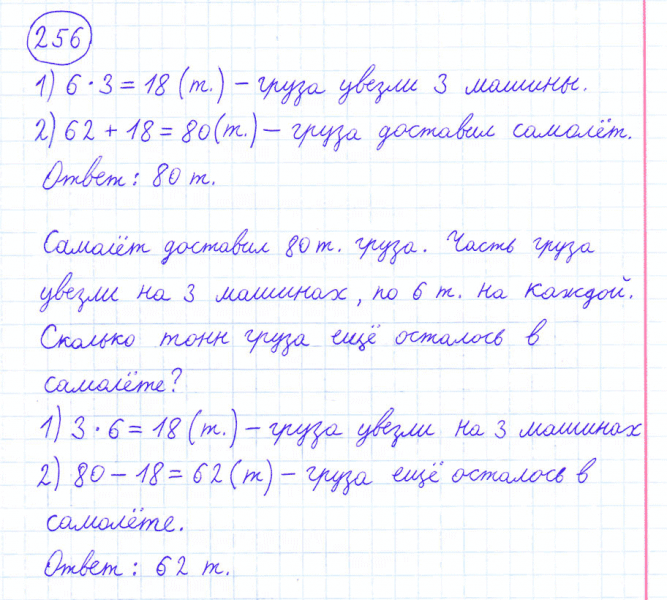 256
1) 6 · 3 = 18 (т.) – груза увезли 3 машины.
2) 62 + 18 = 80 (т.) – груза доставил самолёт.
Ответ: 80 т.
Самолёт доставил 80 т. груза. Часть груза
увезли на 3 машинах, по 6 т. на каждой.
Сколько тонн груза ещё осталось в
самолёте?
1) 3 · 6 = 18 (т.) – груза увезли на 3 машинах
2) 80 – 18 = 62 (т) – груза ещё осталось в
самолёте.
Ответ: 62 т.